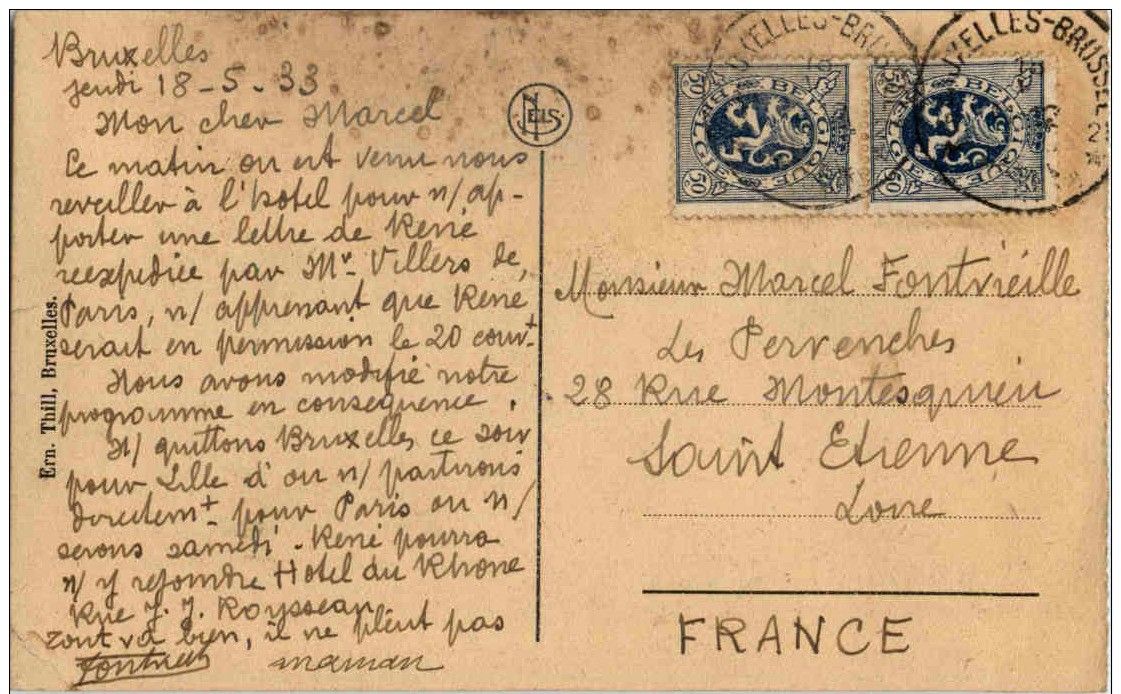 Bruxelles
jeudi 18-5-33
Mon cher Marcel
Ce matin on est venu nous
reveiller à l'hotel pour n/ ap-
porter une lettre de René
reexpediée par Mr Villers de
Paris, n/ apprenant que René
serait en permission le 20 cour+
Nous avons modifié notre
programme en consequence.
N/ quittons Bruxelles ce soir
pour Lille d'ou n/ partirons
directem+ pour Paris ou n/
serons samedi. René pourra
n/ y rejoindre Hotel du Rhone
Rue J. J. Rousseau
tout va bien, il ne pleut pas
maman
Ern. Thill, Bruxelles.
NELS
BELGIQUE BELGIE
50 50
BELGIQUE BELGIE
50 50
UXELLES-BRUSSEL
UXELLES-BRUSSEL
Monsieur Marcel Fontvieille
Les Pervenches
28 Rue Montesquieu
Saint Etienne
Loire
FRANCE